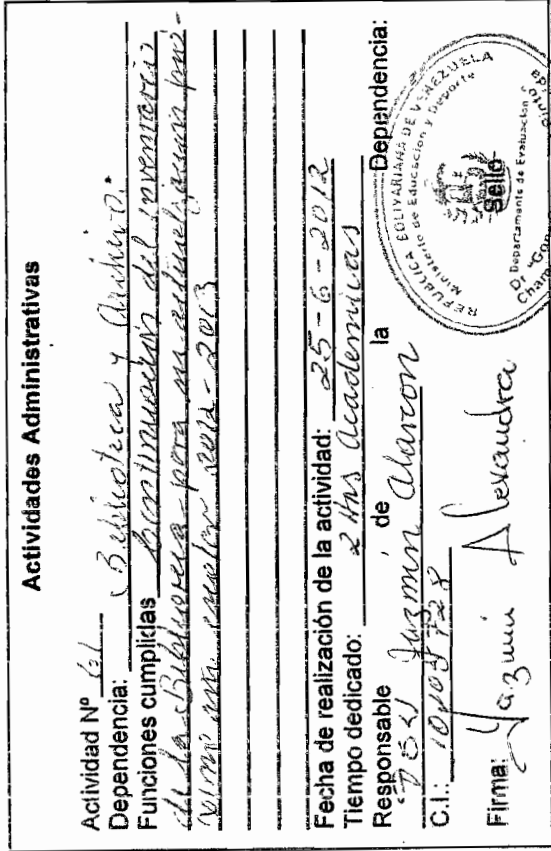 Actividades Administrativas
Actividad Nº 61
Dependencia: Biblioteca y Archivo.
Funciones cumplidas Continuación del inventario
de la Biblioteca para su
año escolar 2012-2013
Fecha de realización de la actividad: 25-6-2012
Tiempo dedicado: 2 Hrs Academicas
Responsable de la Dependencia:
TSU Yazmin Alarcon
C.I.:
Firma: Yazmin Alexandra
Sello
REPUBLICA BOLIVARIANA DE VENEZUELA
Ministerio de Educacion y Deporte
Departamento de Evaluacion